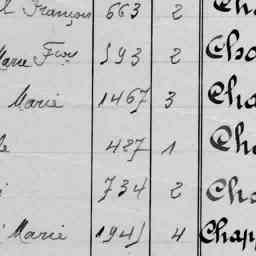 François 663 2 Cha
Marie Frse 593 2 Cho
Marie 1467 3 Cha
487 1 Cha
734 2 Cha
Marie 1945 4 Chap